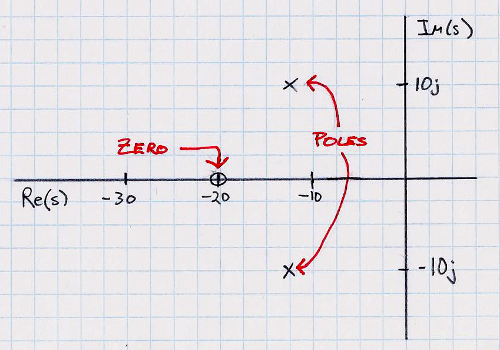 Im(s)
10j
ZERO
POLES
Re(s)
-30
-20
-10
-10j